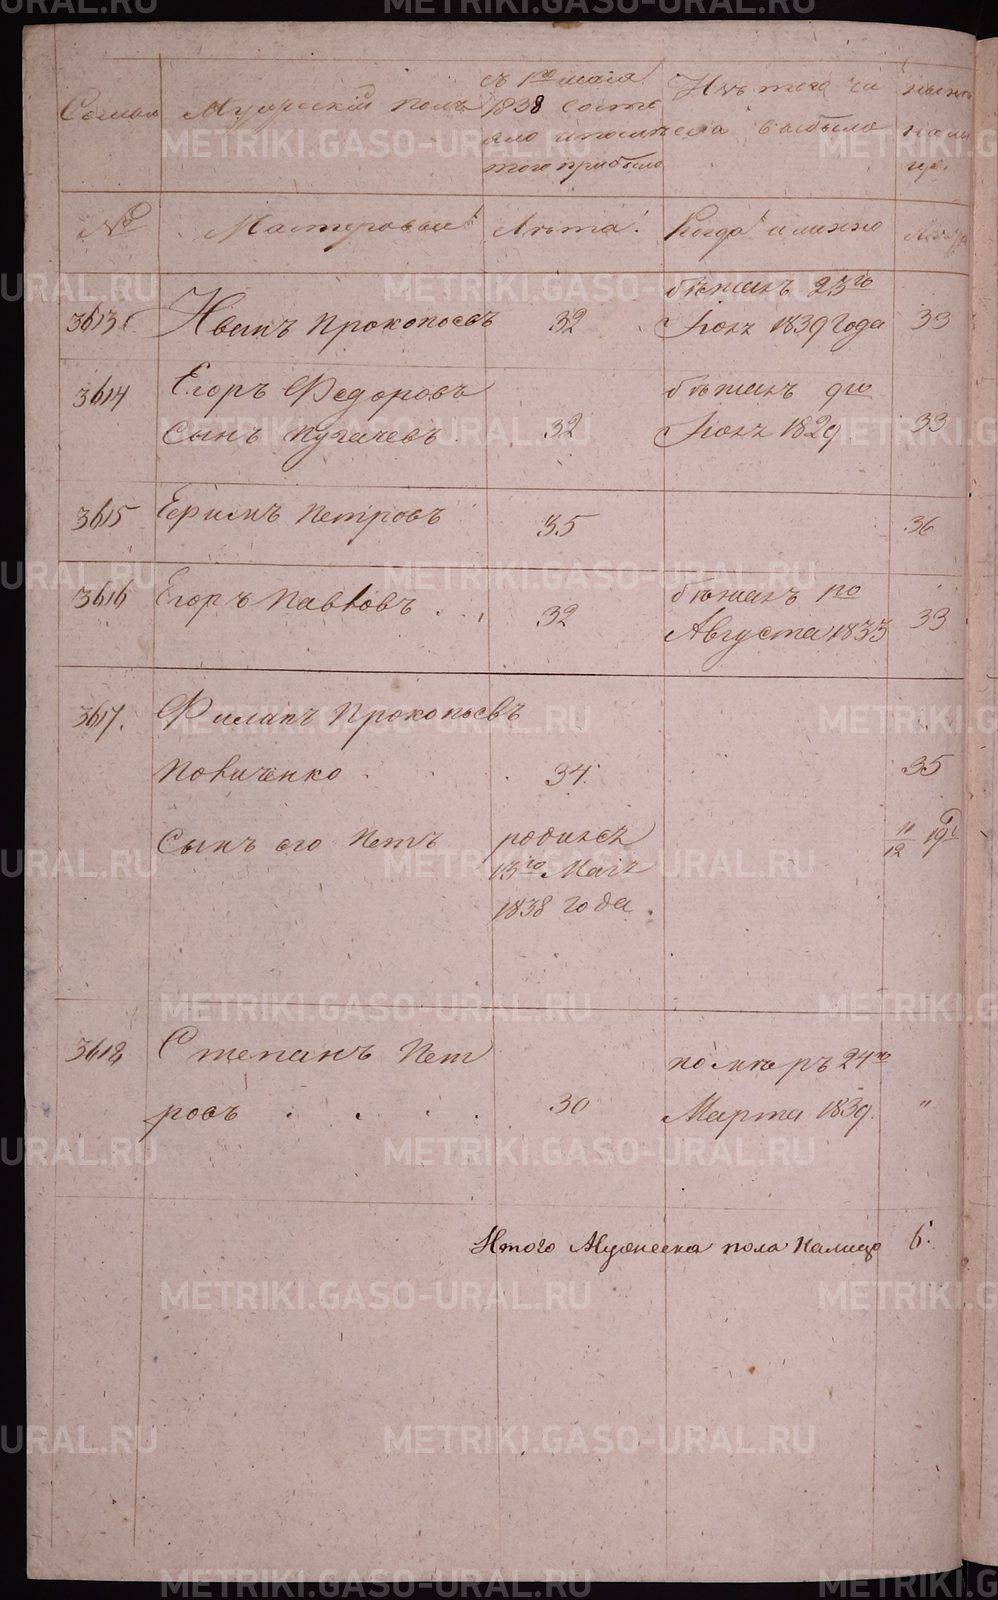 Мужеский полъ
съ 1го маія
1838 состо
яло и после
того прибыло
Изъ того чи
сла выбыло
ныне
на ли
цо
№
Мастеровые
Лѣта
Когда именно
Лѣта
3613
Иванъ Прокопьевъ
32
бѣжалъ 23го
Іюля 1839 года
33
3614
Егоръ Федоровъ
сынъ Пугачевъ
32
бѣжалъ 9го
Іюля 1829
33
3615
Ефимъ Петровъ
35
36
3616
Егоръ Павловъ
32
бѣжалъ 1го
Августа 1833
33
3617.
Филапъ Прокопьевъ
Повиченко
34
35
Сынъ его Петъ
родился
13го Маія
1838 года.
11/12
3618
Степанъ Пет
ровъ
30
помѣръ 24го
Марта 1839.
"
Итого Мужеска пола Налицо
6.
METRIKI.GASO-URAL.RU